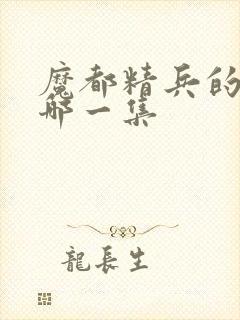 魔都精兵的
哪一集
龍長生